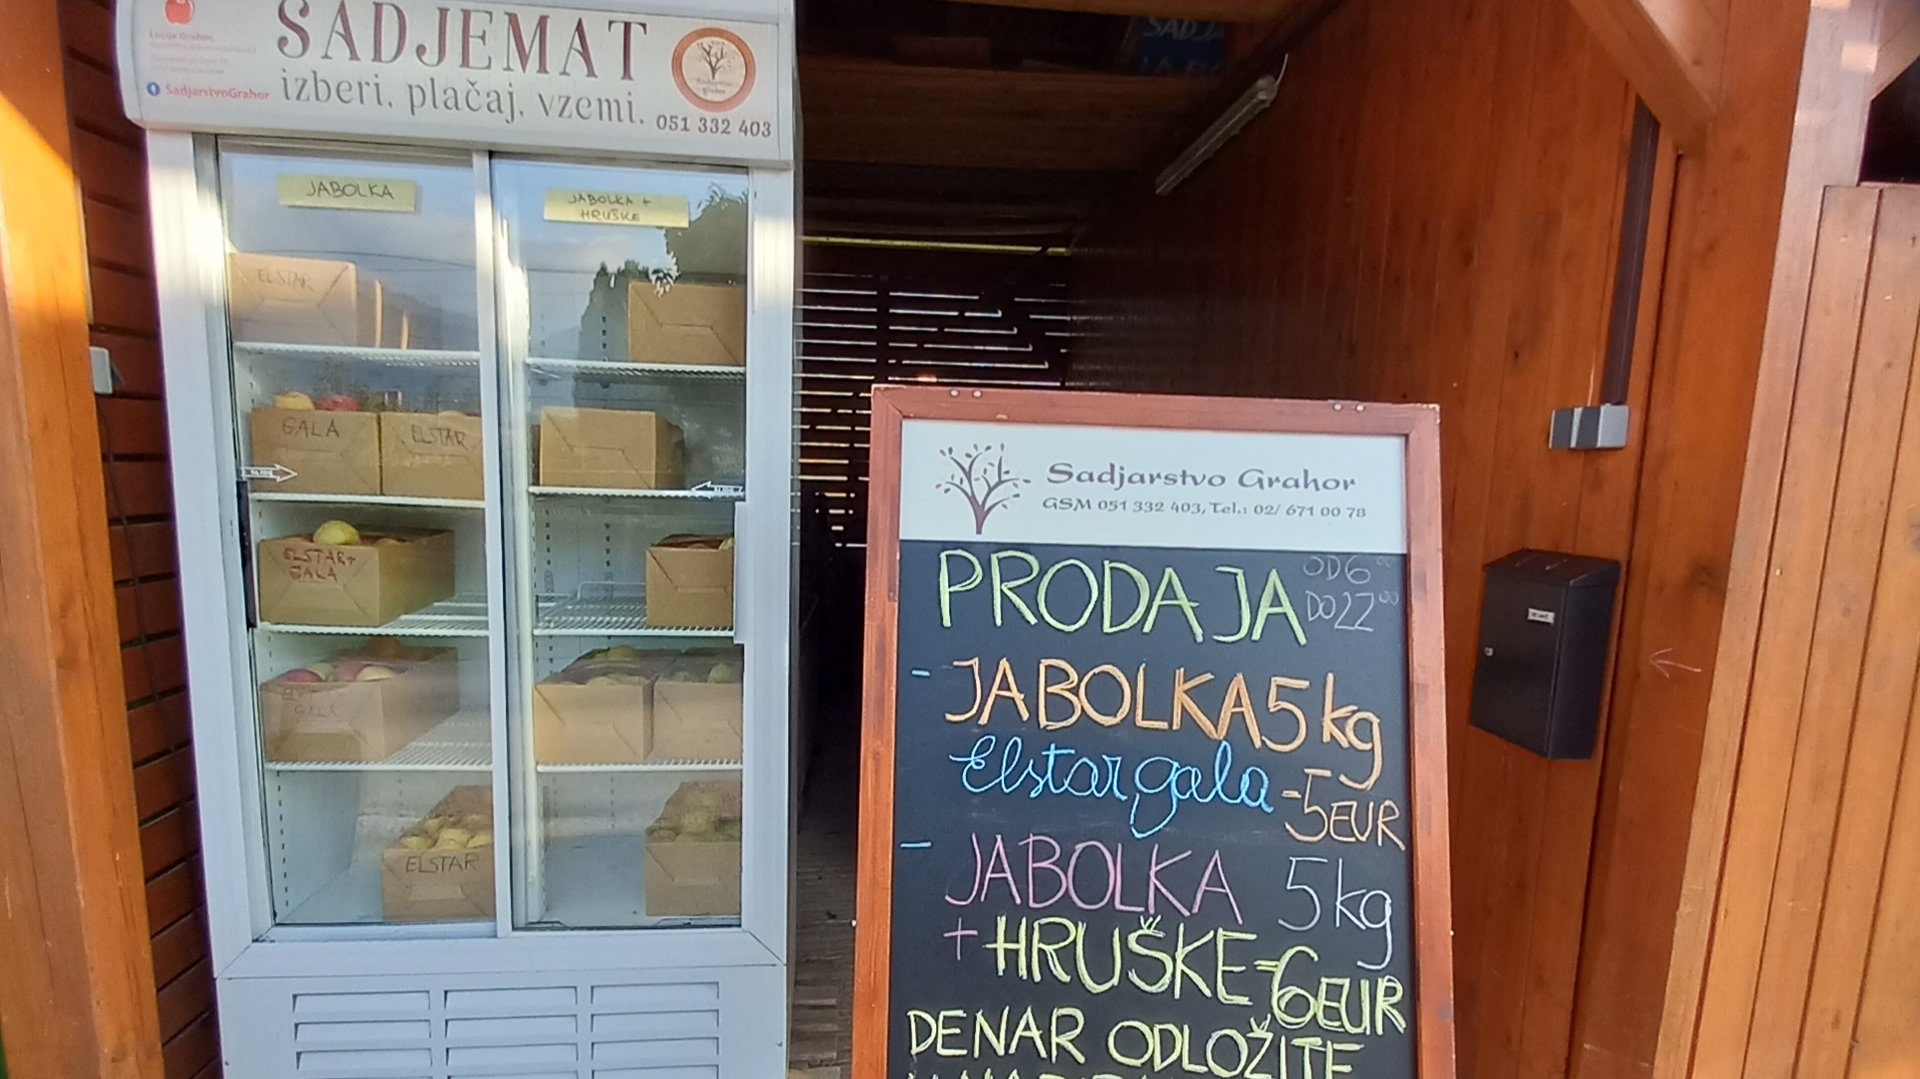 SADJEMAT
izberi, plačaj, vzemi.
051 332 403
Lucija Grahor,
SadjarstvoGrahor
JABOLKA
JABOLKA +
HRUŠKE
ELSTAR
GALA
ELSTAR
ELSTAR+
GALA
ELSTAR
GALA
ELSTAR
Sadjarstvo Grahor
GSM 051 332 403, Tel.: 02/ 671 00 78
PRODAJA
OD 6⁰⁰
DO 22⁰⁰
- JABOLKA 5 kg
Elstar, gala -5EUR
- JABOLKA 5 kg
+ HRUŠKE -6EUR
DENAR ODLOŽITE